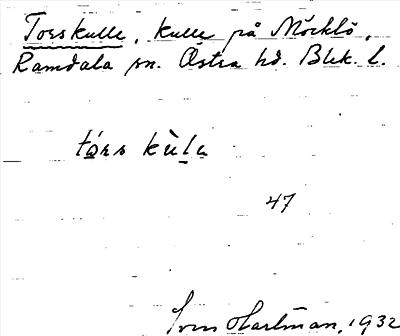 Torskulle, kulle på Möcklö,
Ramdala sn. Östra hd. Blek. l.
47
Sven Hartman, 1932